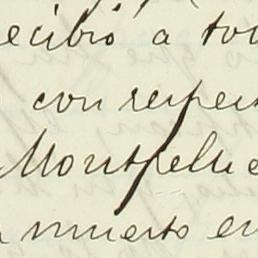 ecibió a tod
con respect
Montpelier
muerto en